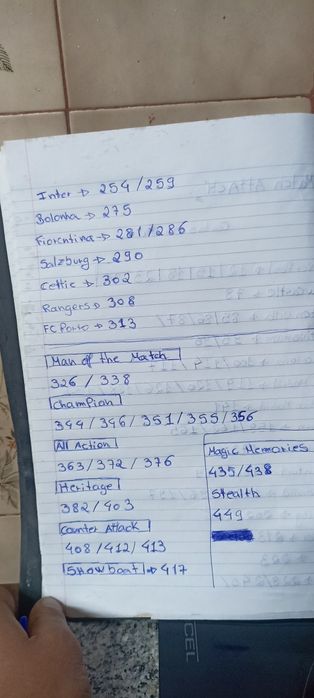 Inter → 254/259
Bolonha → 275
Fiorentina → 281/286
Salzburg → 290
Celtic → 302
Rangers → 308
FC Porto → 313
Man of the Match
326 / 338
Champion
344/346/351/355/356
All Action
363/372/376
Heritage
382/403
Counter Attack
408/412/413
Showboat → 417
Magic Memories
435/438
Stealth
449
CEL